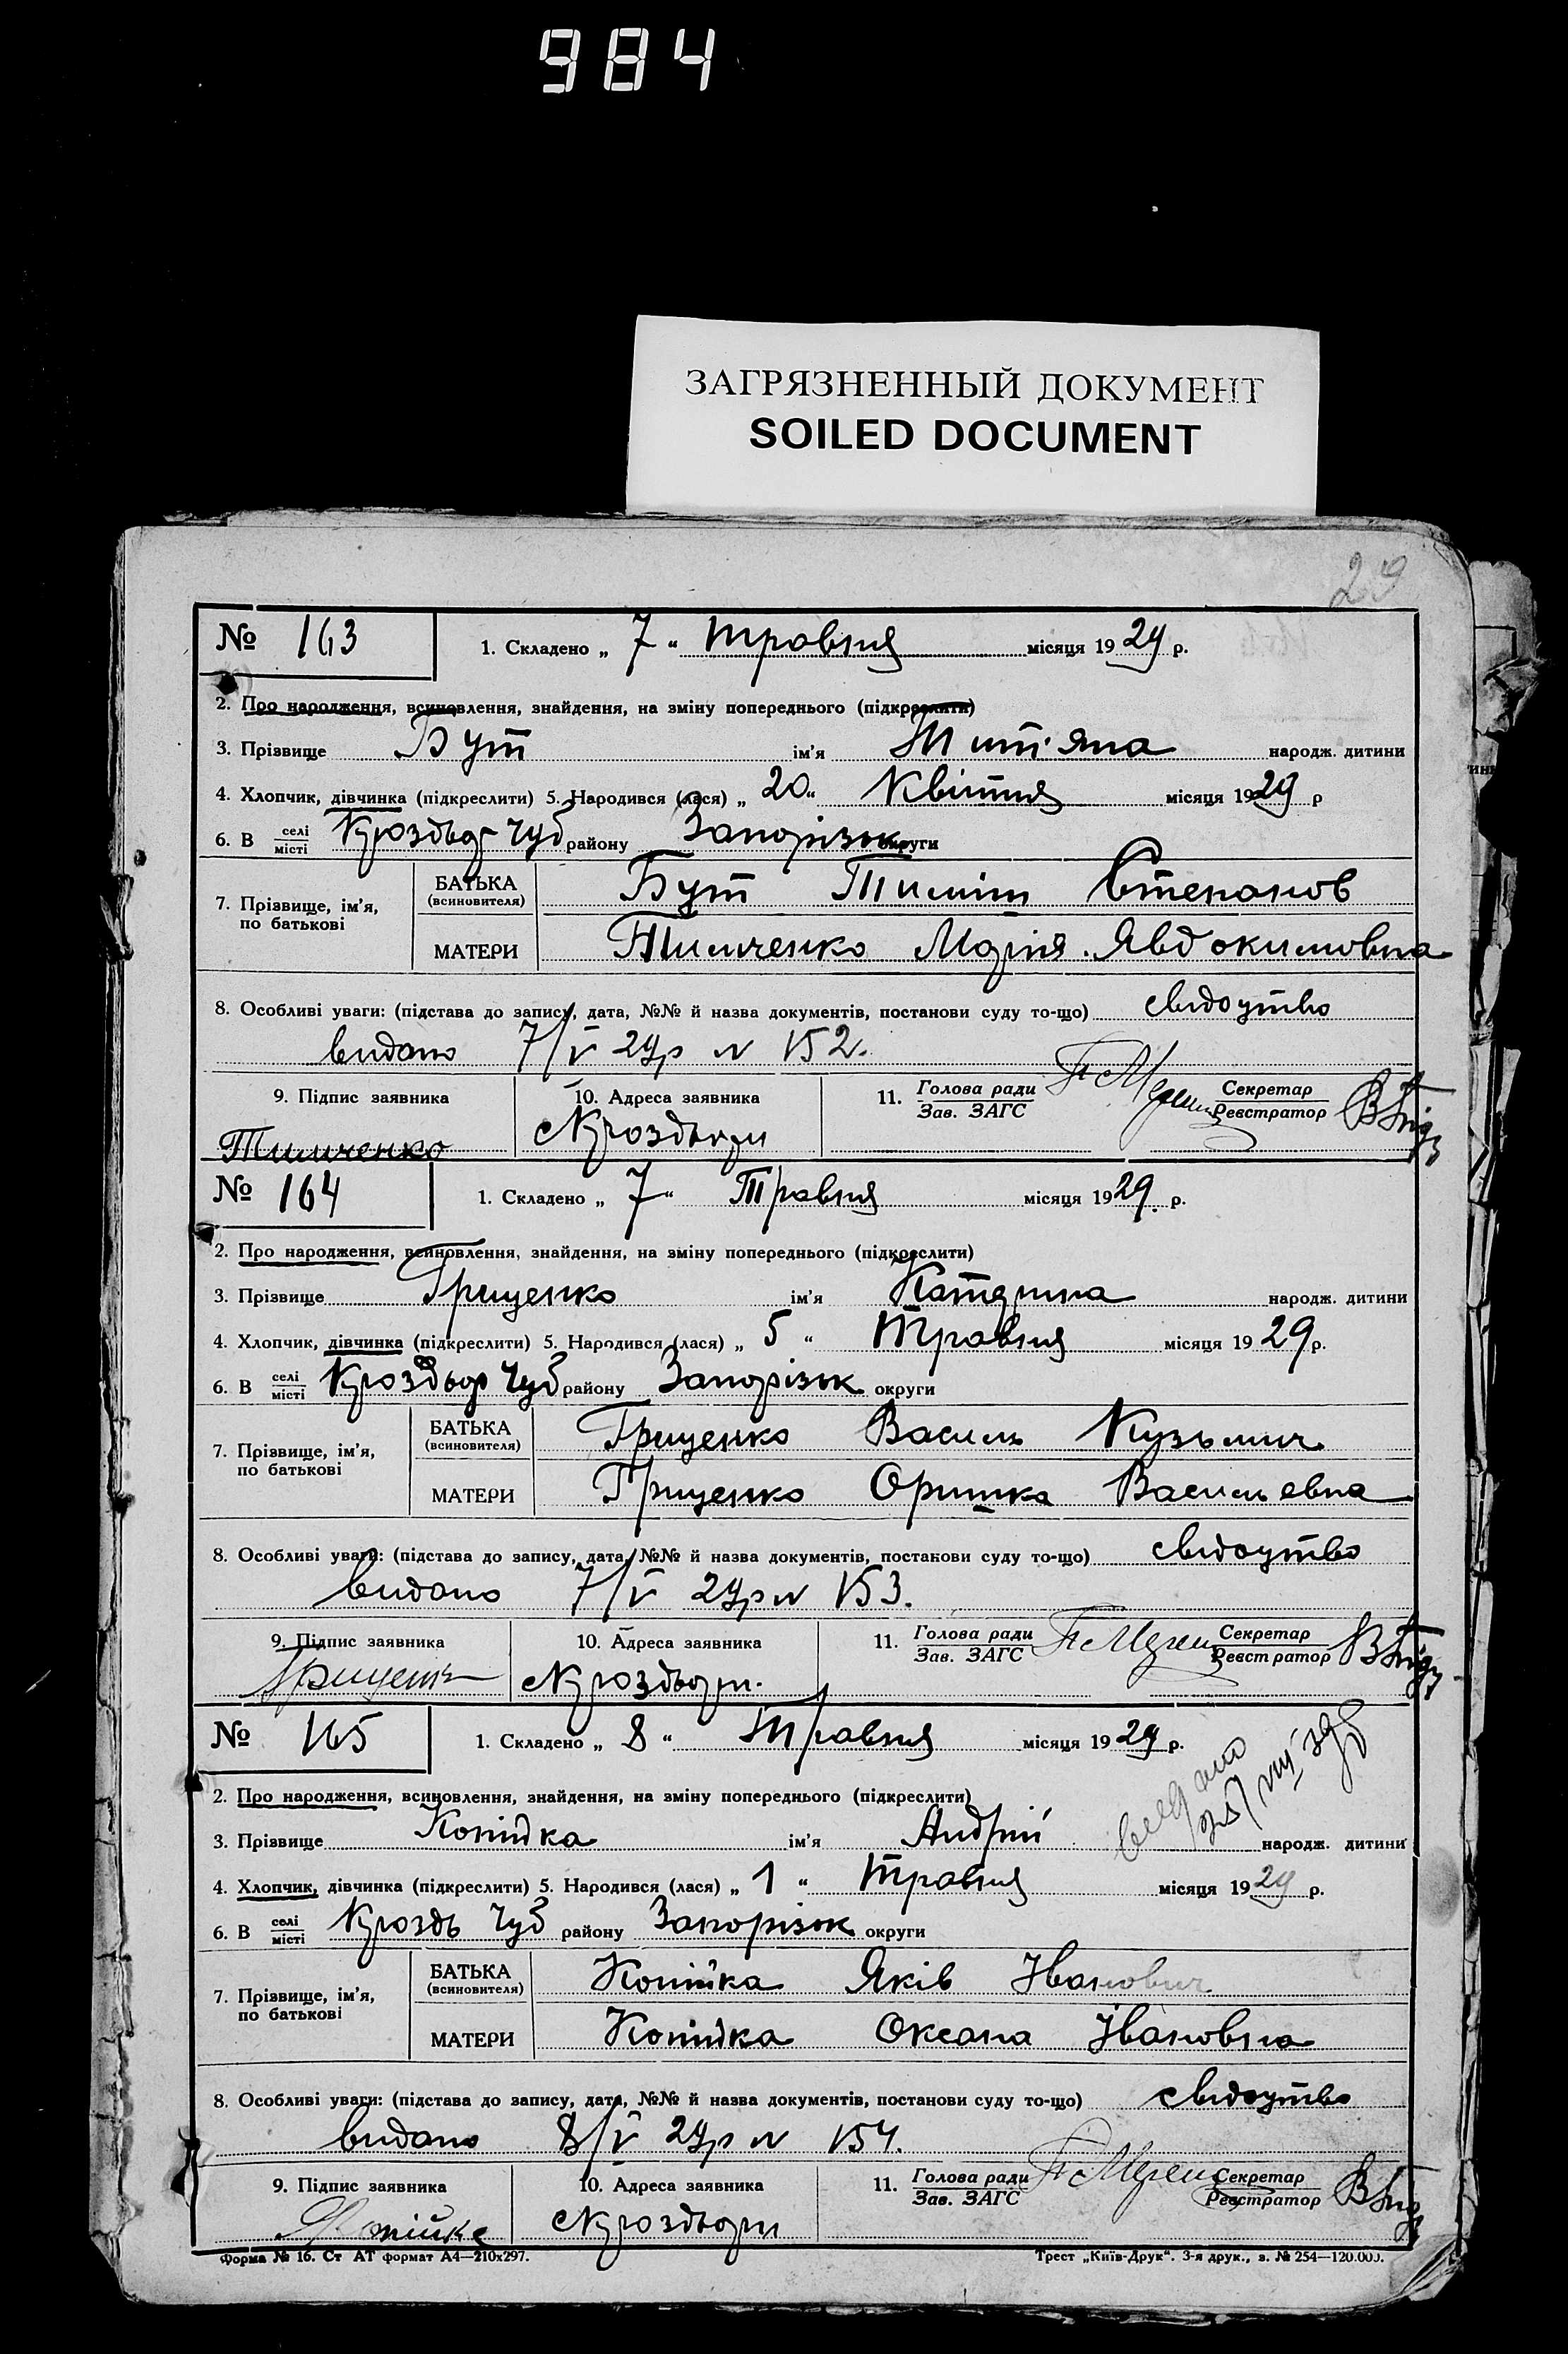 984
ЗАГРЯЗНЕННЫЙ ДОКУМЕНТ
SOILED DOCUMENT
29
№ 163
1. Складено „ 7 “ травня місяця 1929 р.
2. Про народження, всиновлення, знайдення, на зміну попереднього (підкреслити)
3. Прізвище Бут ім'я Титяна народж. дитини
4. Хлопчик, дівчинка (підкреслити) 5. Народився (лася) „ 20 “ Квітня місяця 1929 р
6. В селі/місті Чуб району Запорізьк округи
7. Прізвище, ім'я, по батькові
БАТЬКА (всиновителя) Бут Тиміш Степанов
МАТЕРИ Тимченко Марія Явдокимовна
8. Особливі уваги: (підстава до запису, дата, №№ й назва документів, постанови суду то-що) свидоцтво
видано 7/V 29р N 152.
9. Підпис заявника
10. Адреса заявника
11. Голова ради/Зав. ЗАГС Секретар/Реєстратор
Тимченко
№ 164
1. Складено „ 7 “ Травня місяця 1929. р.
2. Про народження, всиновлення, знайдення, на зміну попереднього (підкреслити)
3. Прізвище Грищенко ім'я Катерина народж. дитини
4. Хлопчик, дівчинка (підкреслити) 5. Народився (лася) „ 5 “ Травня місяця 1929 р.
6. В селі/місті Чуб району Запорізьк округи
7. Прізвище, ім'я, по батькові
БАТЬКА (всиновителя) Грищенко Василь Кузьмич
МАТЕРИ Грищенко Оришка Васильевна
8. Особливі уваги: (підстава до запису, дата, №№ й назва документів, постанови суду то-що) свидоцтво
видано 7/V 29р N 153.
9. Підпис заявника
10. Адреса заявника
11. Голова ради/Зав. ЗАГС Секретар/Реєстратор
№ 165
1. Складено „ 8 “ Травня місяця 1929 р.
2. Про народження, всиновлення, знайдення, на зміну попереднього (підкреслити)
3. Прізвище Копійка ім'я Андрій народж. дитини
4. Хлопчик, дівчинка (підкреслити) 5. Народився (лася) „ 1 “ Травня місяця 1929 р.
6. В селі/місті Чуб району Запорізьк округи
7. Прізвище, ім'я, по батькові
БАТЬКА (всиновителя) Копійка Яків Іванович
МАТЕРИ Копійка Оксана Івановна
8. Особливі уваги: (підстава до запису, дата, №№ й назва документів, постанови суду то-що) свидоцтво
видано 8/V 29р N 154.
9. Підпис заявника
10. Адреса заявника
11. Голова ради/Зав. ЗАГС Секретар/Реєстратор
Форма № 16. Ст АТ формат А4—210х297.
Трест „Київ-Друк“. 3-я друк., з. № 254—120.000.